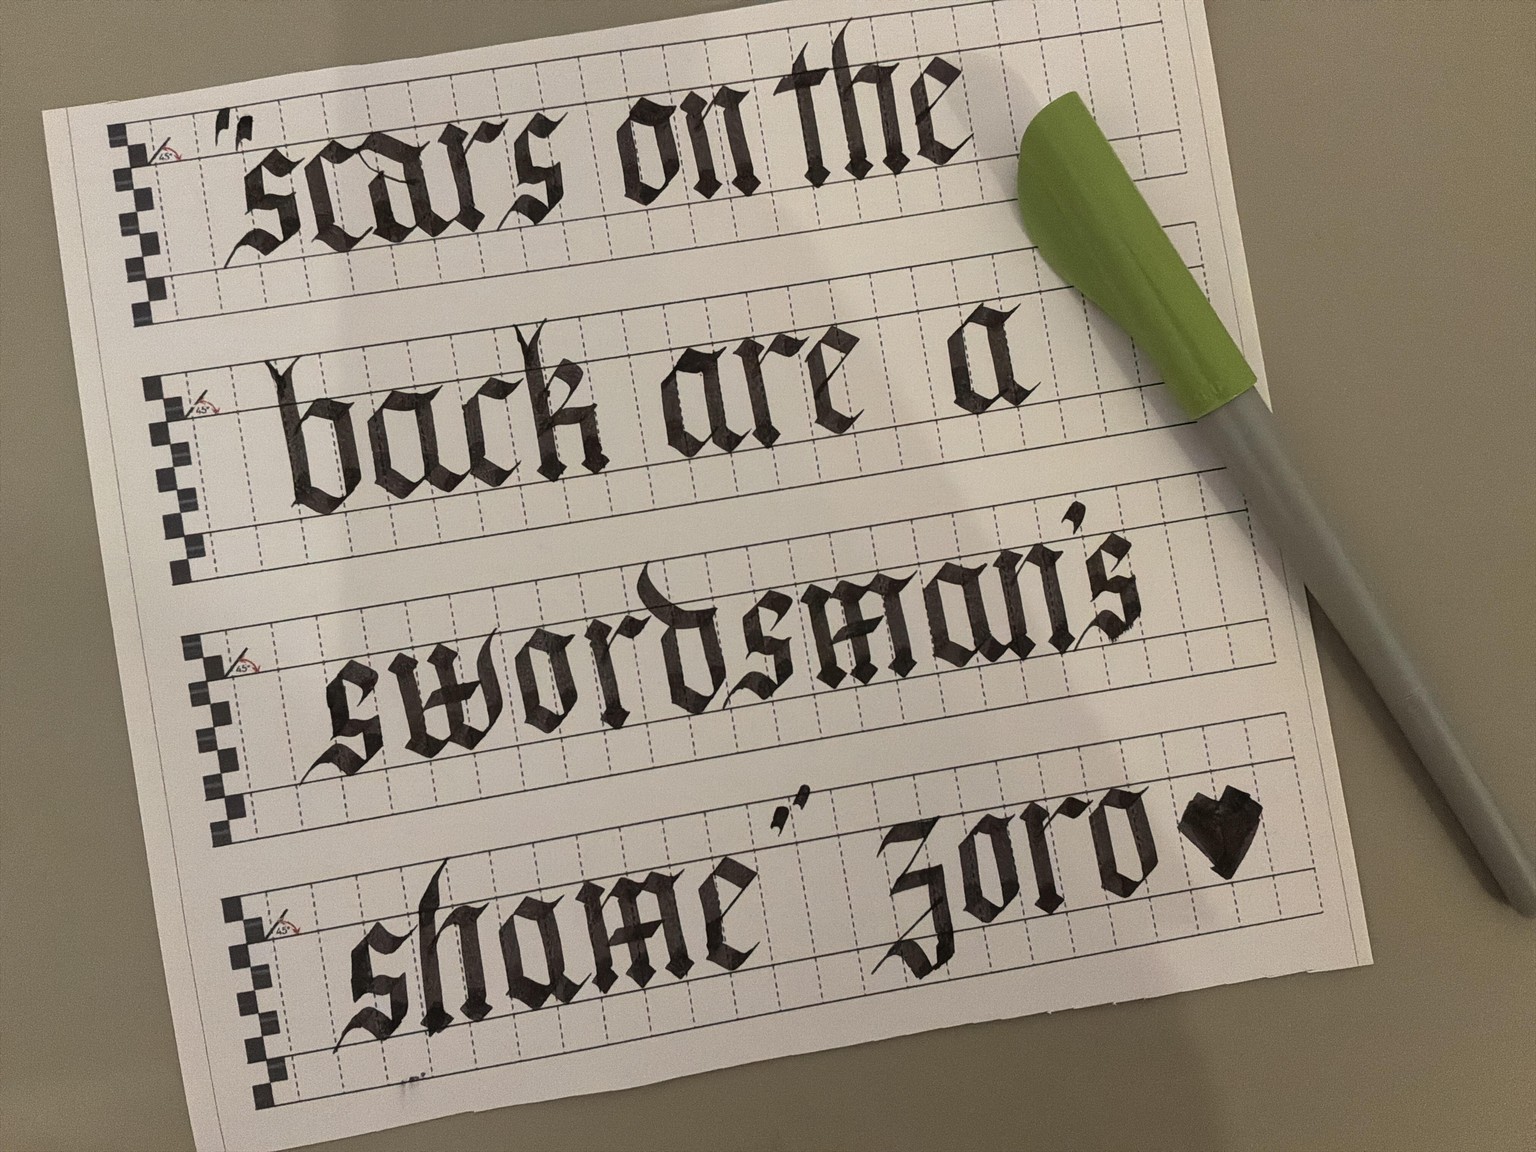 "scars on the
back are a
swordsman's
shame" Zoro♥
45°
45°
45°
45°